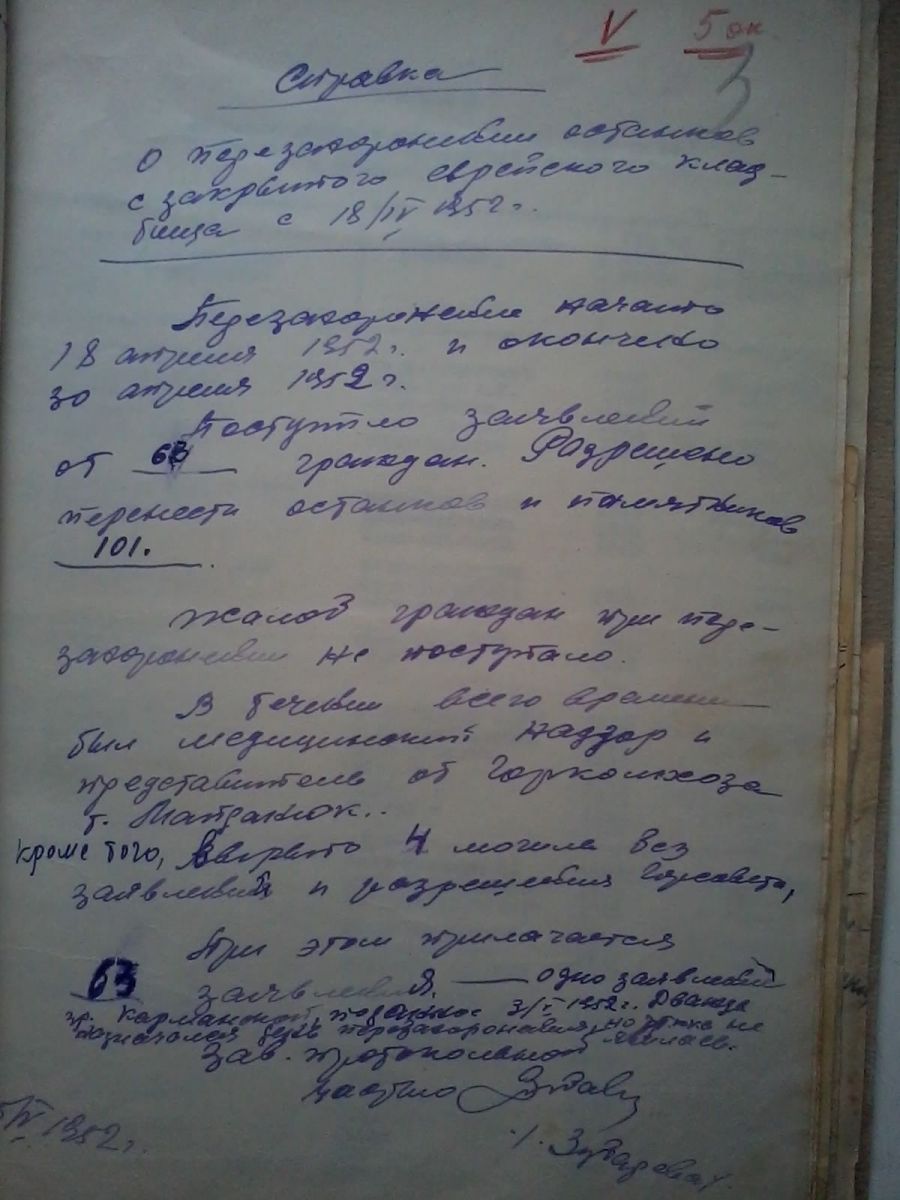 V 5 эк
3
Справка
О перезахоронении останков
с закрытого еврейского клад-
бища с 18/IV 1952 г.
Перезахоронение начато
18 апреля 1952 г. и окончено
30 апреля 1952 г.
Поступило заявлений
от 63 граждан. Разрешено
перенести останков и памятников
101.
Жалоб граждан при пере-
захоронении не поступало.
В течении всего времени
был медицинский надзор и
представитель от Горкомхоза
т.
Кроме того, вскрыто 4 могилы без
заявлений и разрешения Горсовета,
При этом прилагается
63 заявления. — одно заявление
гр. поданное 3/V 1952 г. Дважды
назначался день перезахоронения, но не явилась.
Зав. протокольной
частью
/IV 1952 г.